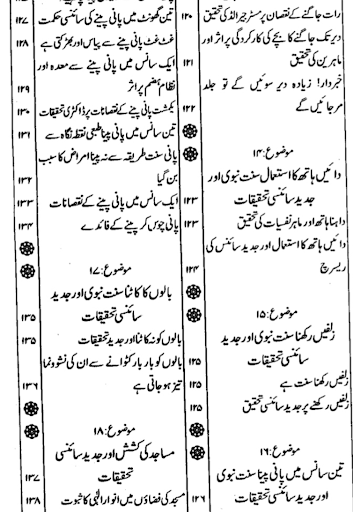 رات جاگنے کے نقصان پر مسٹر جیرالڈ کی تحقیق ۱۲۰
دیر تک جاگنے کا بچے کی کارکردگی پر اثر اور
ماہرین کی تحقیق ۱۲۱
خبردار! زیادہ دیر سوئیں گے تو جلد
مر جائیں گے ۱۲۲
موضوع:۱۴
دائیں ہاتھ کا استعمال سنت نبوی اور
جدید سائنسی تحقیقات ۱۲۳
داہنا ہاتھ اور ماہر نفسیات کی تحقیق ۱۲۳
دائیں ہاتھ کا استعمال اور جدید سائنس کی
ریسرچ ۱۲۴
موضوع:۱۵
زلفیں رکھنا سنت نبوی اور جدید
سائنسی تحقیقات ۱۲۵
زلفیں رکھنا سنت ہے ۱۲۵
زلفیں رکھنے پر جدید سائنسی تحقیق ۱۲۵
موضوع:۱۶
تین سانس میں پانی پینا سنت نبوی
اور جدید سائنسی تحقیقات ۱۲۶
تین گھونٹ میں پانی پینے کی سائنسی حکمت ۱۲۷
غٹ غٹ پانی پینے سے پیاس اور بھڑکتی ہے ۱۲۸
ایک سانس میں پانی پینے سے معدہ اور
نظام ہضم پر اثر ۱۲۹
یکمشت پانی پینے کے نقصانات پر ڈاکٹری تحقیقات ۱۳۰
تین سانس میں پانی پینا طبی نقطہ نگاہ سے ۱۳۱
پانی سنت طریقہ سے نہ پینا امراض کا سبب
بن گیا ۱۳۲
ایک سانس میں پانی پینے کے نقصانات ۱۳۳
پانی چوس کر پینے کے فائدے ۱۳۴
موضوع:۱۷
بالوں کا کاٹنا سنت نبوی اور جدید
سائنسی تحقیقات ۱۳۵
بالوں کو نہ کاٹنا اور جدید تحقیقات ۱۳۵
بالوں کو بار بار کٹوانے سے ان کی نشوونما
تیز ہو جاتی ہے ۱۳۶
موضوع:۱۸
مساجد کی کشش اور جدید سائنسی
تحقیقات ۱۳۷
مسجد کی فضاؤں میں انوار الٰہی کا ثبوت ۱۳۸